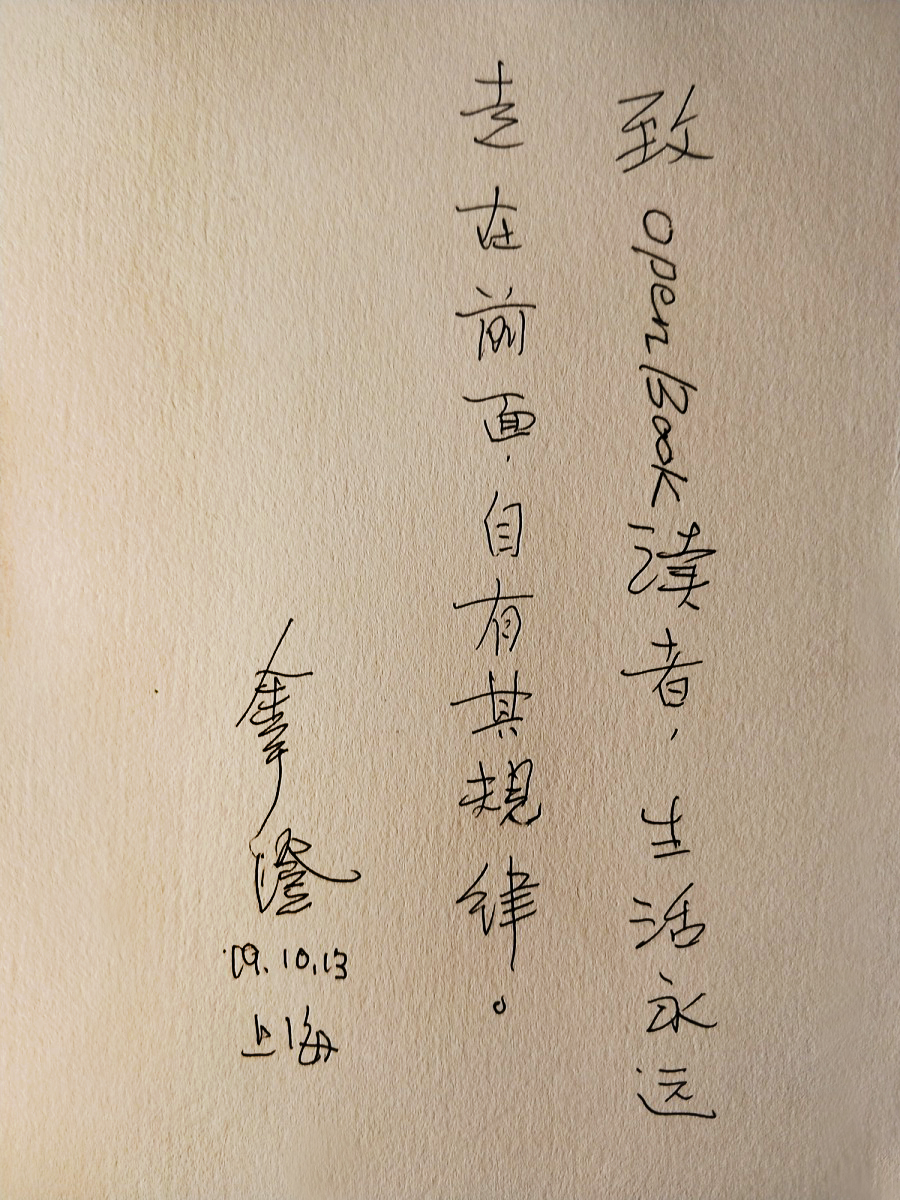 致 Open/Book 读者，生活永远
走在前面，自有其规律。
金宇澄
'19.10.13
上海